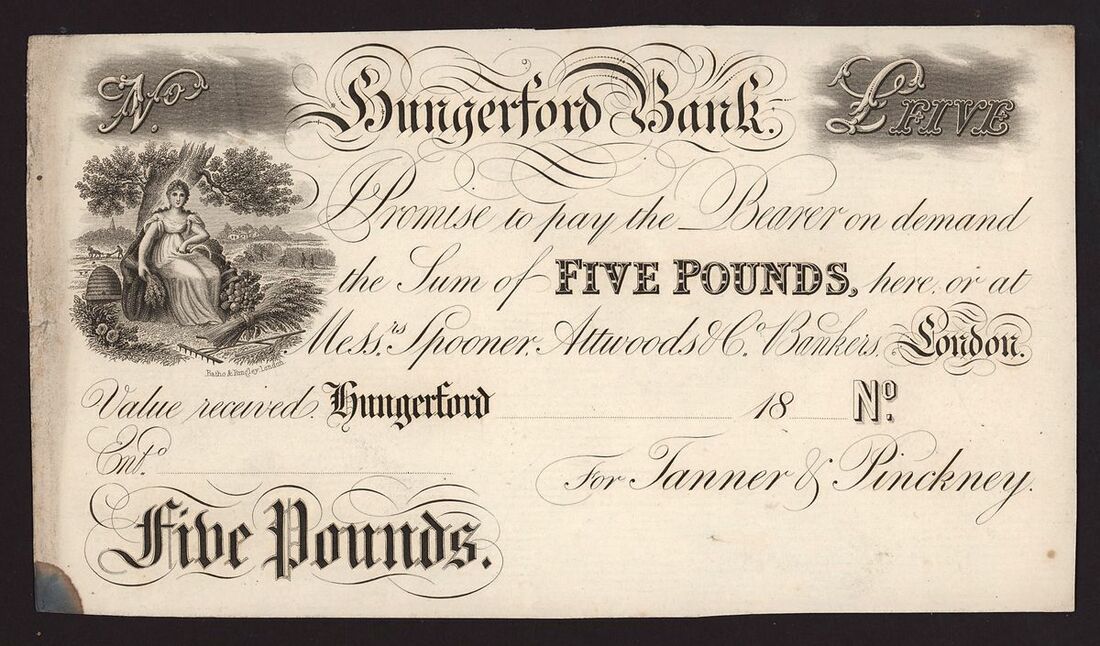 No. Hungerford Bank. £FIVE
I Promise to pay the Bearer on demand
the Sum of FIVE POUNDS, here, or at
Messrs. Spooner, Attwoods & Co. Bankers, London.
Batho & Bingley, London
Value received. Hungerford 18 No.
Entd.
For Tanner & Pinckney.
Five Pounds.